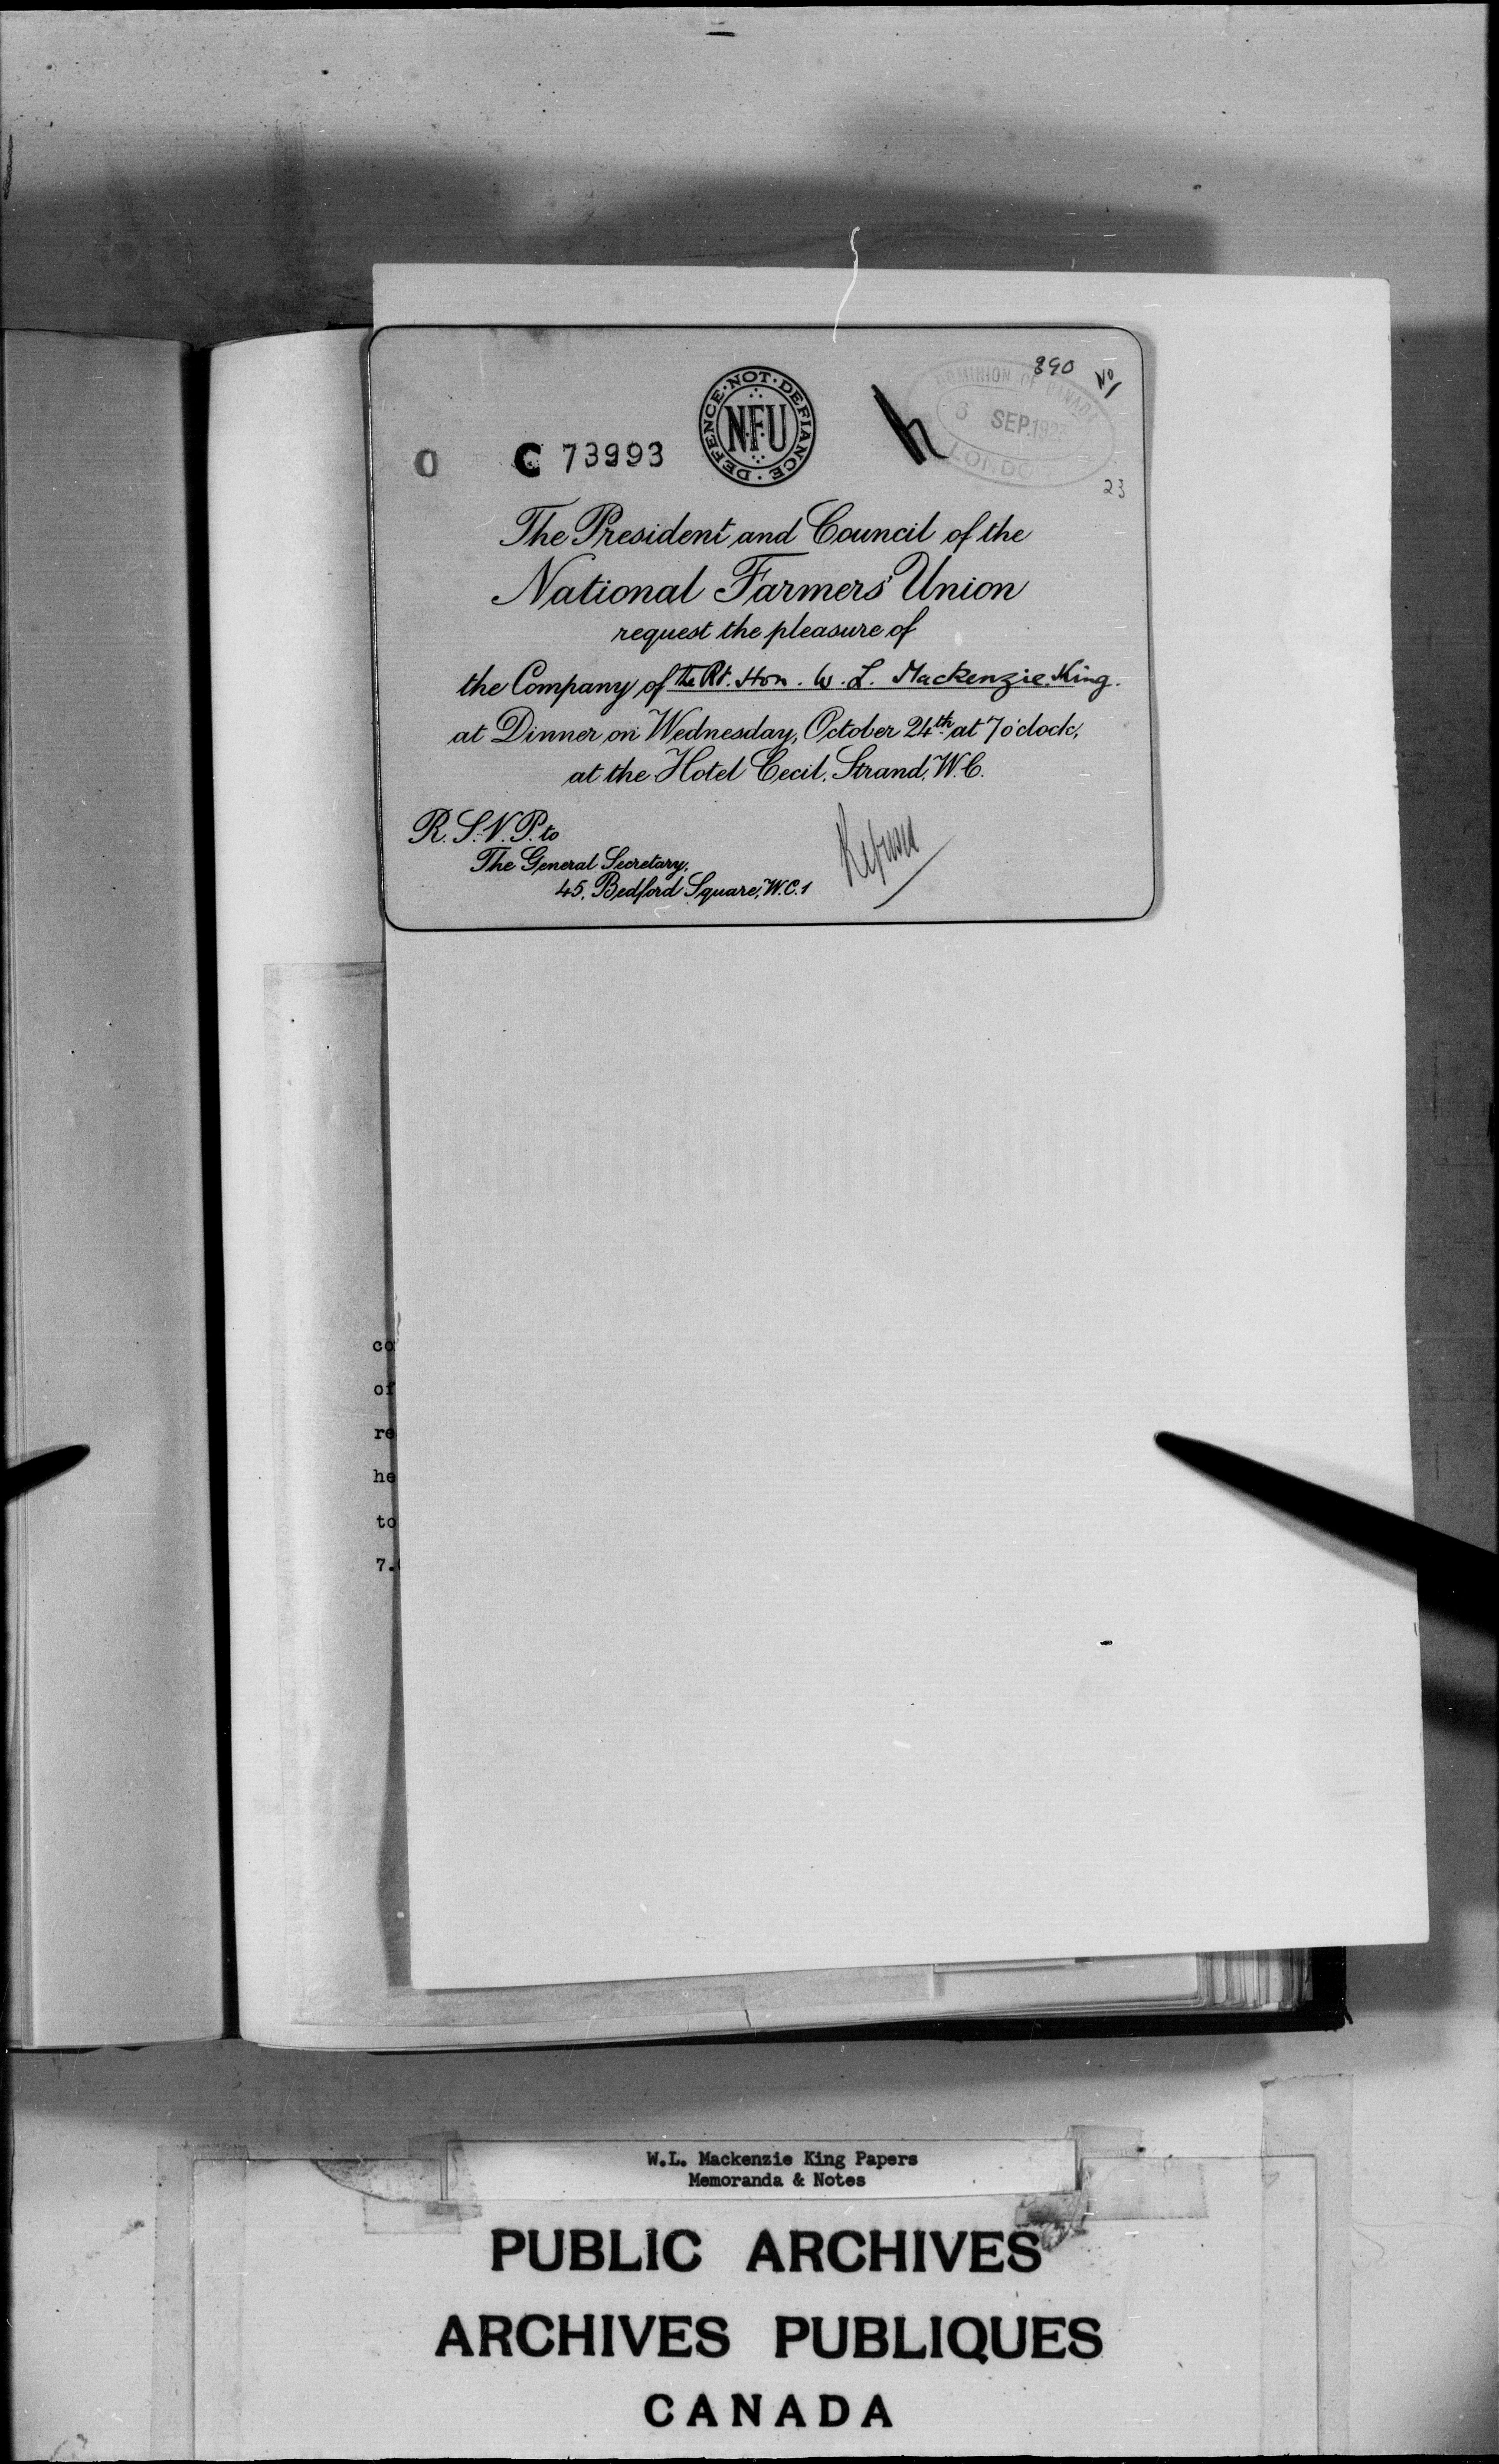 390 No/
DOMINION OF CANADA
6 SEP.1923
LONDON
23
DEFENCE·NOT·DEFIANCE·
NFU
O C 73993
The President and Council of the
National Farmers' Union
request the pleasure of
the Company of The Rt. Hon. W. L. Mackenzie King.
at Dinner on Wednesday, October 24th at 7 o'clock,
at the Hotel Cecil, Strand, W.C.
R.S.V.P. to
The General Secretary,
45, Bedford Square, W.C.1
Refused
co
of
re
he
to
7.
W.L. Mackenzie King Papers
Memoranda & Notes
PUBLIC ARCHIVES
ARCHIVES PUBLIQUES
CANADA